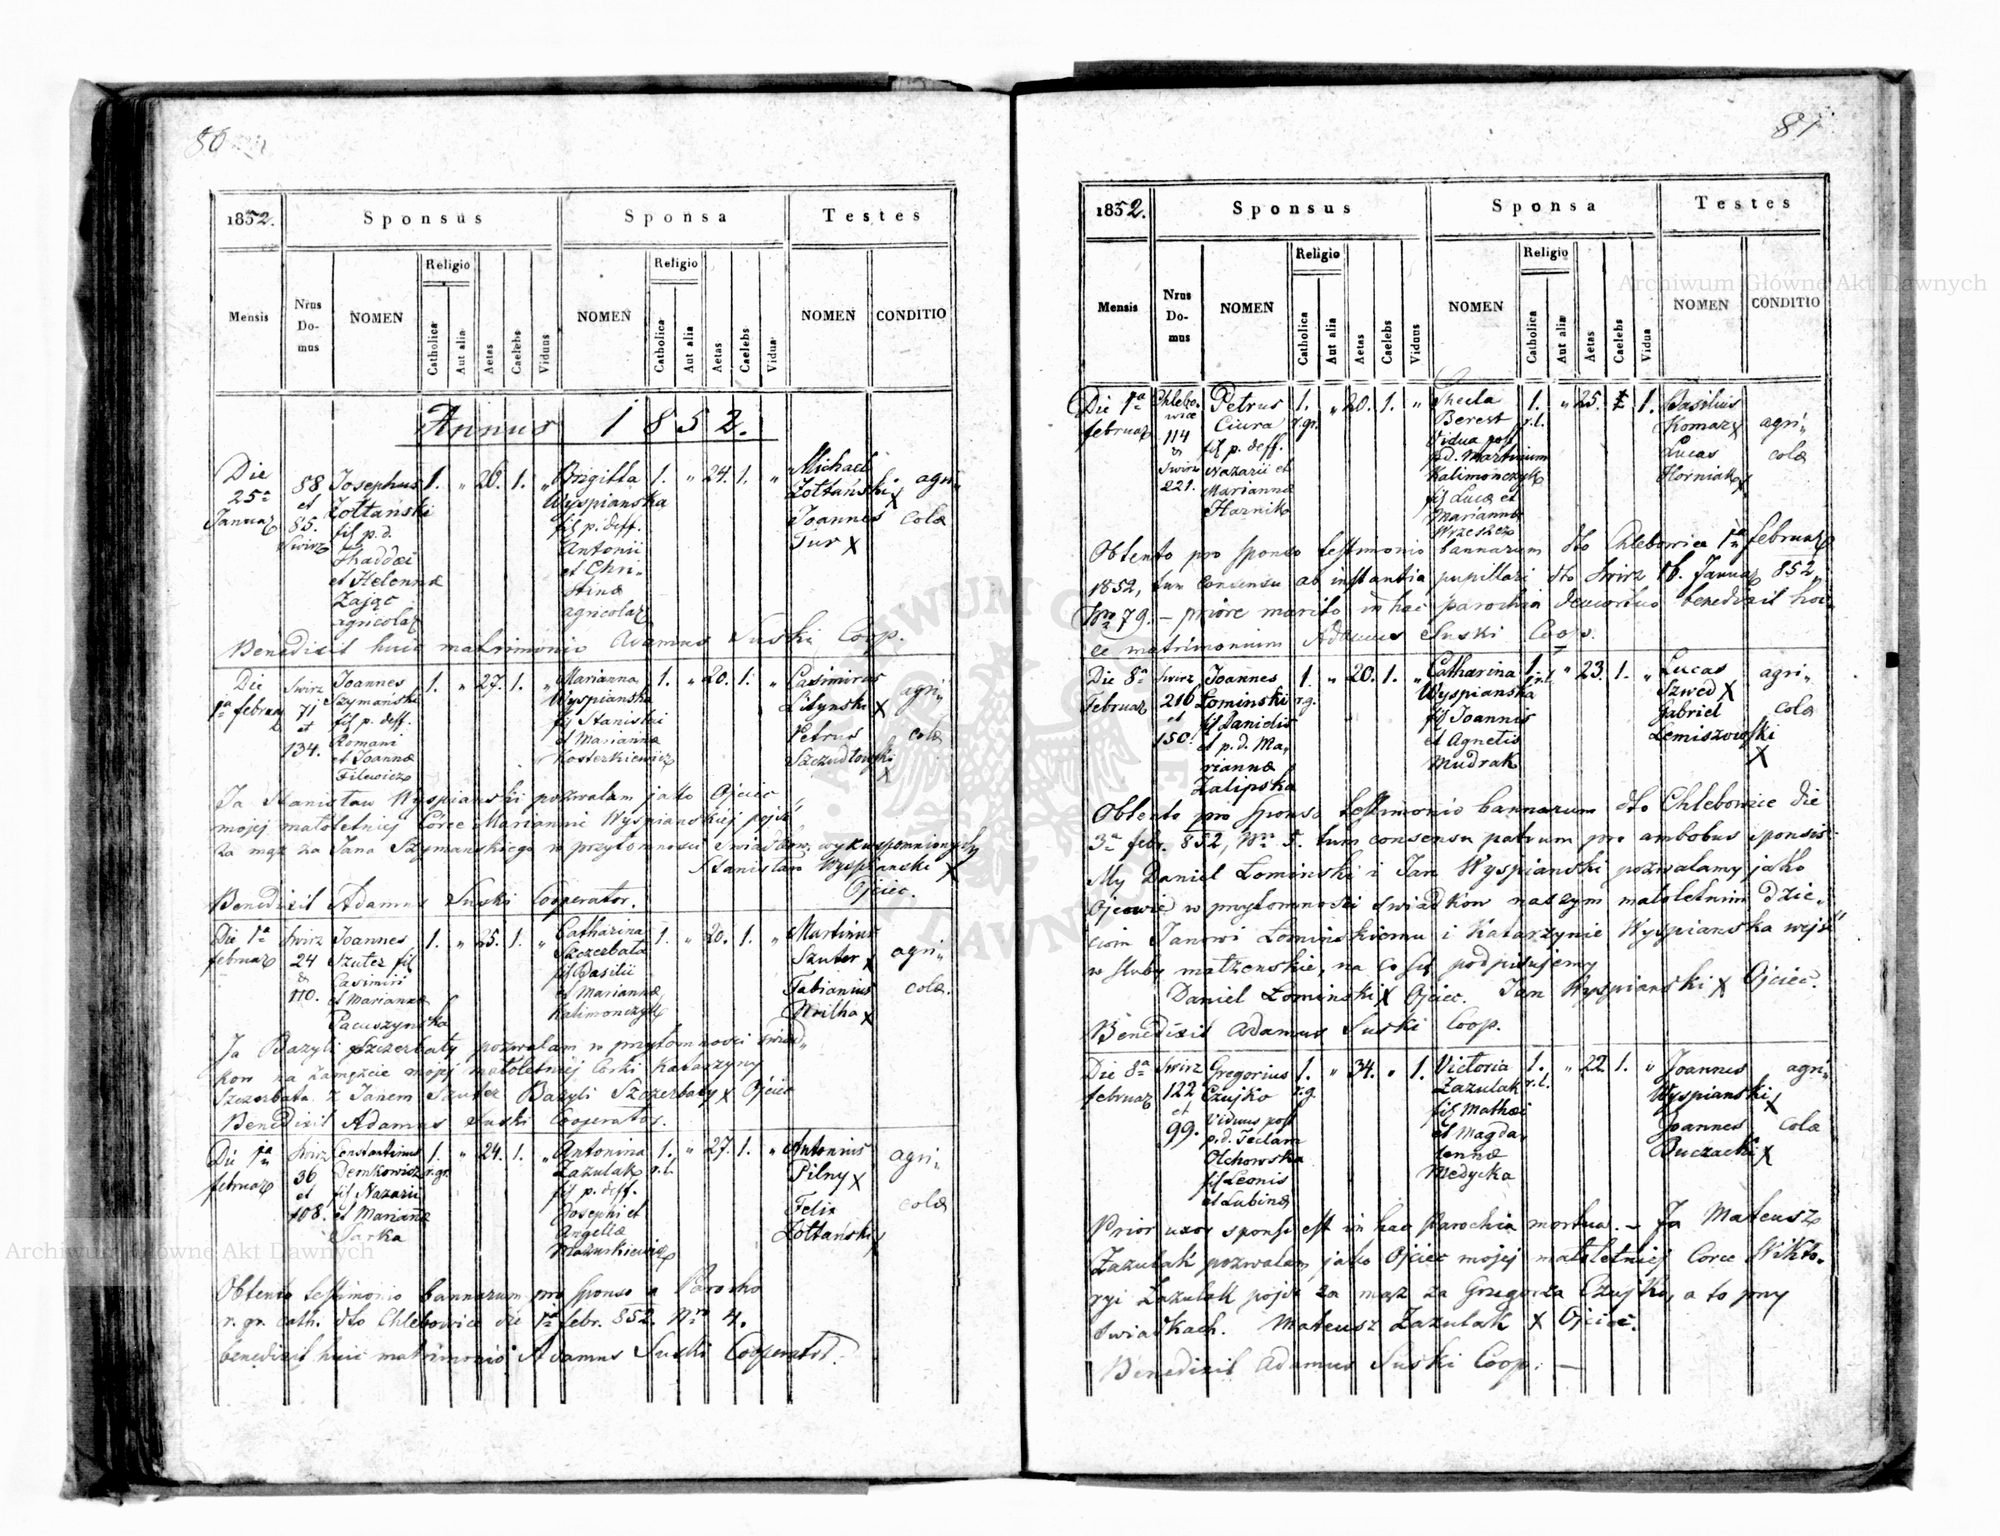 80
1852.
Sponsus
Sponsa
Testes
Mensis
Nrus Do-mus
NOMEN
Religio
Catholica
Aut alia
Aetas
Caelebs
Viduus
NOMEN
Religio
Catholica
Aut alia
Aetas
Caelebs
Vidua
NOMEN
CONDITIO
Annus 1852.
Die 25a Januar
88 et 85. Swirz
Josephus
Żołtański
fil p. d.
Thaddæi
et Helennæ
Zając
agricolar
1. " 26. 1. "
Brigitta
Wyspianska
fil p. deff.
Antonii
et Chri-
stinæ
agricolar
1. " 24. 1. "
Michael
Żołtański x
Joannes
Tur x
agri-
colæ
Benedixit huic matrimonio Adamus Suski Coop.
Die 1a februar
Swirz 71 et 134.
Joannes
Szymanski
fil p. deff.
Romani
et Joannæ
Filewicz
1. " 27. 1. "
Marianna
Wyspianska
fil Stanislai
et Mariannæ
Kosterkiewicz
1. " 20. 1. "
Casimirus
Litynski x
Petrus
Szczudłowski
x
agri-
colæ
Ja Stanisław Wyspianski pozwalam jako Ojciec
mojej małoletniej Córce Mariannie Wyspianskiej pojść
za mąż za Jana Szymanskiego w przytomnosci Swiadków wyżwspomnionych
Stanisław Wyspianski x
Ojciec.
Benedixit Adamus Suski Cooperator.
Die 1a februar
Swirz 24 & 110.
Joannes
Szuter fil
Casimiri
et Mariannæ
Pacuszynska
1. " 25. 1. "
Catharina
Szczerbata
fil Basilii
et Mariannæ
Kalimonczyk
1. " 20. 1. "
Martinus
Szuter x
Fabianus
x
agri-
colæ.
Ja Bazyli Szczerbaty pozwalam w przytomnosci swiad-
kow na zamęzcie mojej małoletniej Corki Katarzyny
Szczerbata z Janem Szuter Bazyli Szczerbaty x Ojciec
Benedixit Adamus Suski Cooperator.
Die 1a februar
Swirz 36 et 108.
Constantinus
Demkowicz
fil Nazarii
et Mariannæ
Sarka
1. r. gr. " 24. 1. "
Antonina
Zazulak
fil p. deff.
Josephi et
Angellæ
Mazurkiewicz
1. r. l. " 27. 1. "
Antonius
Pilny x
Felix
Żołtański
x
agri-
colæ
Obtento testimonio bannorum pro sponso a Parocho
r. gr. cath. dto Chlebowice die 1a febr. 852. Nro 4.
benedixit huic matrimonio Adamus Suski Cooperator.
81
1852.
Sponsus
Sponsa
Testes
Mensis
Nrus Do-mus
NOMEN
Religio
Catholica
Aut alia
Aetas
Caelebs
Viduus
NOMEN
Religio
Catholica
Aut alia
Aetas
Caelebs
Vidua
NOMEN
CONDITIO
Die 1a februar
Chlebo-
wice
114
&
Swirz
221.
Petrus
Ciura
fil p. deff.
Nazarii et
Mariannæ
Harniko
1. r. gr. " 20. 1. "
Thecla
Berest
Vidua post
p. d. Martinum
Kalimonczyk
fil Lucæ et
Mariannæ
Wrzeszcz
1. r. l. " 25. 1.
Basilius
Komar x
Lucas
Horniak x
agri-
colæ
Obtento pro sponso testimonio bannorum dto Chlebowice 1a februar
1852, tum consensu ab instantia pupillari dto Swirz 16. Januar 852
Nro 79. – priore marito in hac parochia demortuo benedixit hoi-
ce matrimonium Adamus Suski Coop.
Die 8a Februar
Swirz 216 et 150.
Joannes
Łominski
fil Danielis
et p. d. Ma-
riannæ
Zalipska
1. r. g. " 20. 1. "
Catharina
Wyspianska
fil Joannis
et Agnetis
Mudrak
1. r. l. " 23. 1. "
Lucas
Szwed x
Gabriel
Lemiszowski
x
agri-
colæ
Obtento pro Sponso testimonio bannorum dto Chlebowice die
3a febr. 852, Nro 5. tum consensu patrum pro ambobus sponsis
My Daniel Łominski i Jan Wyspianski pozwalamy jako
Ojcowie w przytomnosci swiadkow naszym małoletnim dzie-
ciom Janowi Łominskiemu i Katarzynie Wyspianska wejść
w sluby małzenskie, na co się podpisujemy
Daniel Łominski x Ojciec. Jan Wyspianski x Ojciec.
Benedixit Adamus Suski Coop.
Die 8a februar
Swirz 122 et 99.
Gregorius
Czujko
Viduus post
p. d. Teclam
Olchowska
fil Leonis
et Lubinæ
1. r. g. " 34. " 1.
Victoria
Zazulak
fil Mathæi
et Magda-
lennæ
Medycka
1. r. l. " 22 1. "
Joannes
Wyspianski x
Joannes
Buczacki x
agri-
colæ
Prior uxor sponsi est in hac Parochia mortua. – Ja Mateusz
Zazulak pozwalam jako Ojciec mojej małoletniej Corce Wikto-
ryi Zazulak pojść za mąz za Grzegorza Czujko, a to przy
swiadkach. Mateusz Zazulak x Ojciec.
Benedixit Adamus Suski Coop. –
Archiwum Główne Akt Dawnych
Archiwum Główne Akt Dawnych